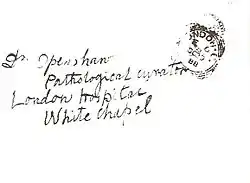 Dr. Openshaw
Pathological curator
London Hospital
White chapel